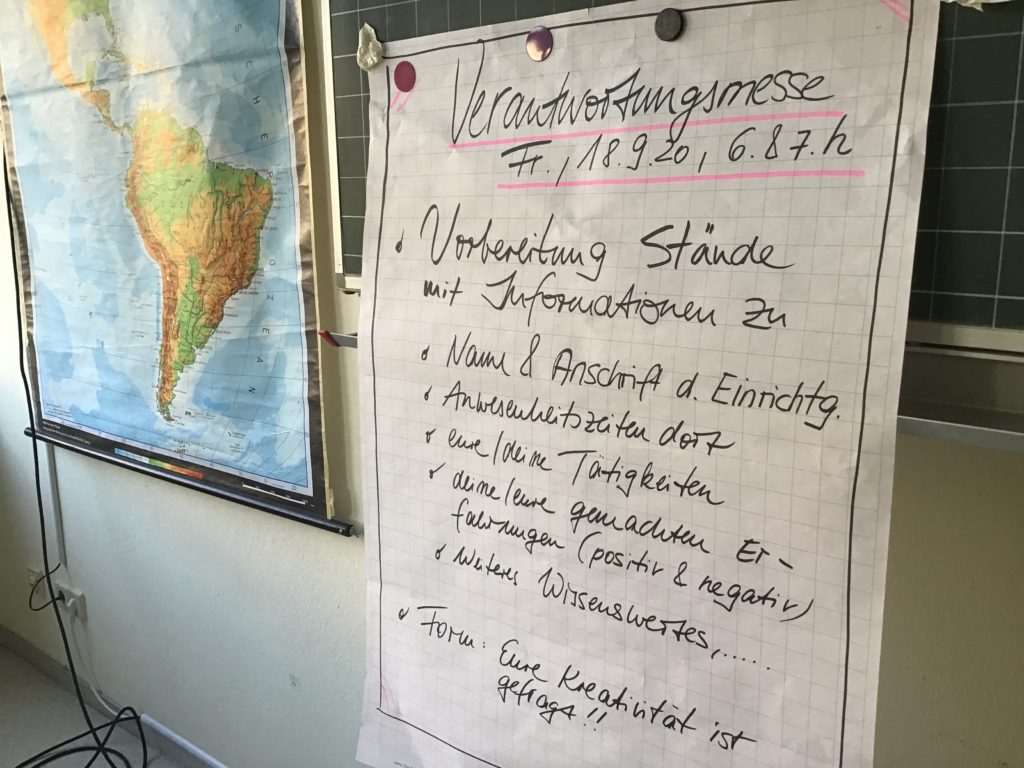 Verantwortungsmesse
Fr., 18.9 20, 6.&7.h
Vorbereitung Stände
mit Informationen zu
Name & Anschrift d. Einrichtg.
Anwesenheitszeiten dort
eure/deine Tätigkeiten
deine/eure gemachten Er-
fahrungen (positiv & negativ)
Weiteres Wissenswertes,.....
Form: Eure Kreativität ist
gefragt!!